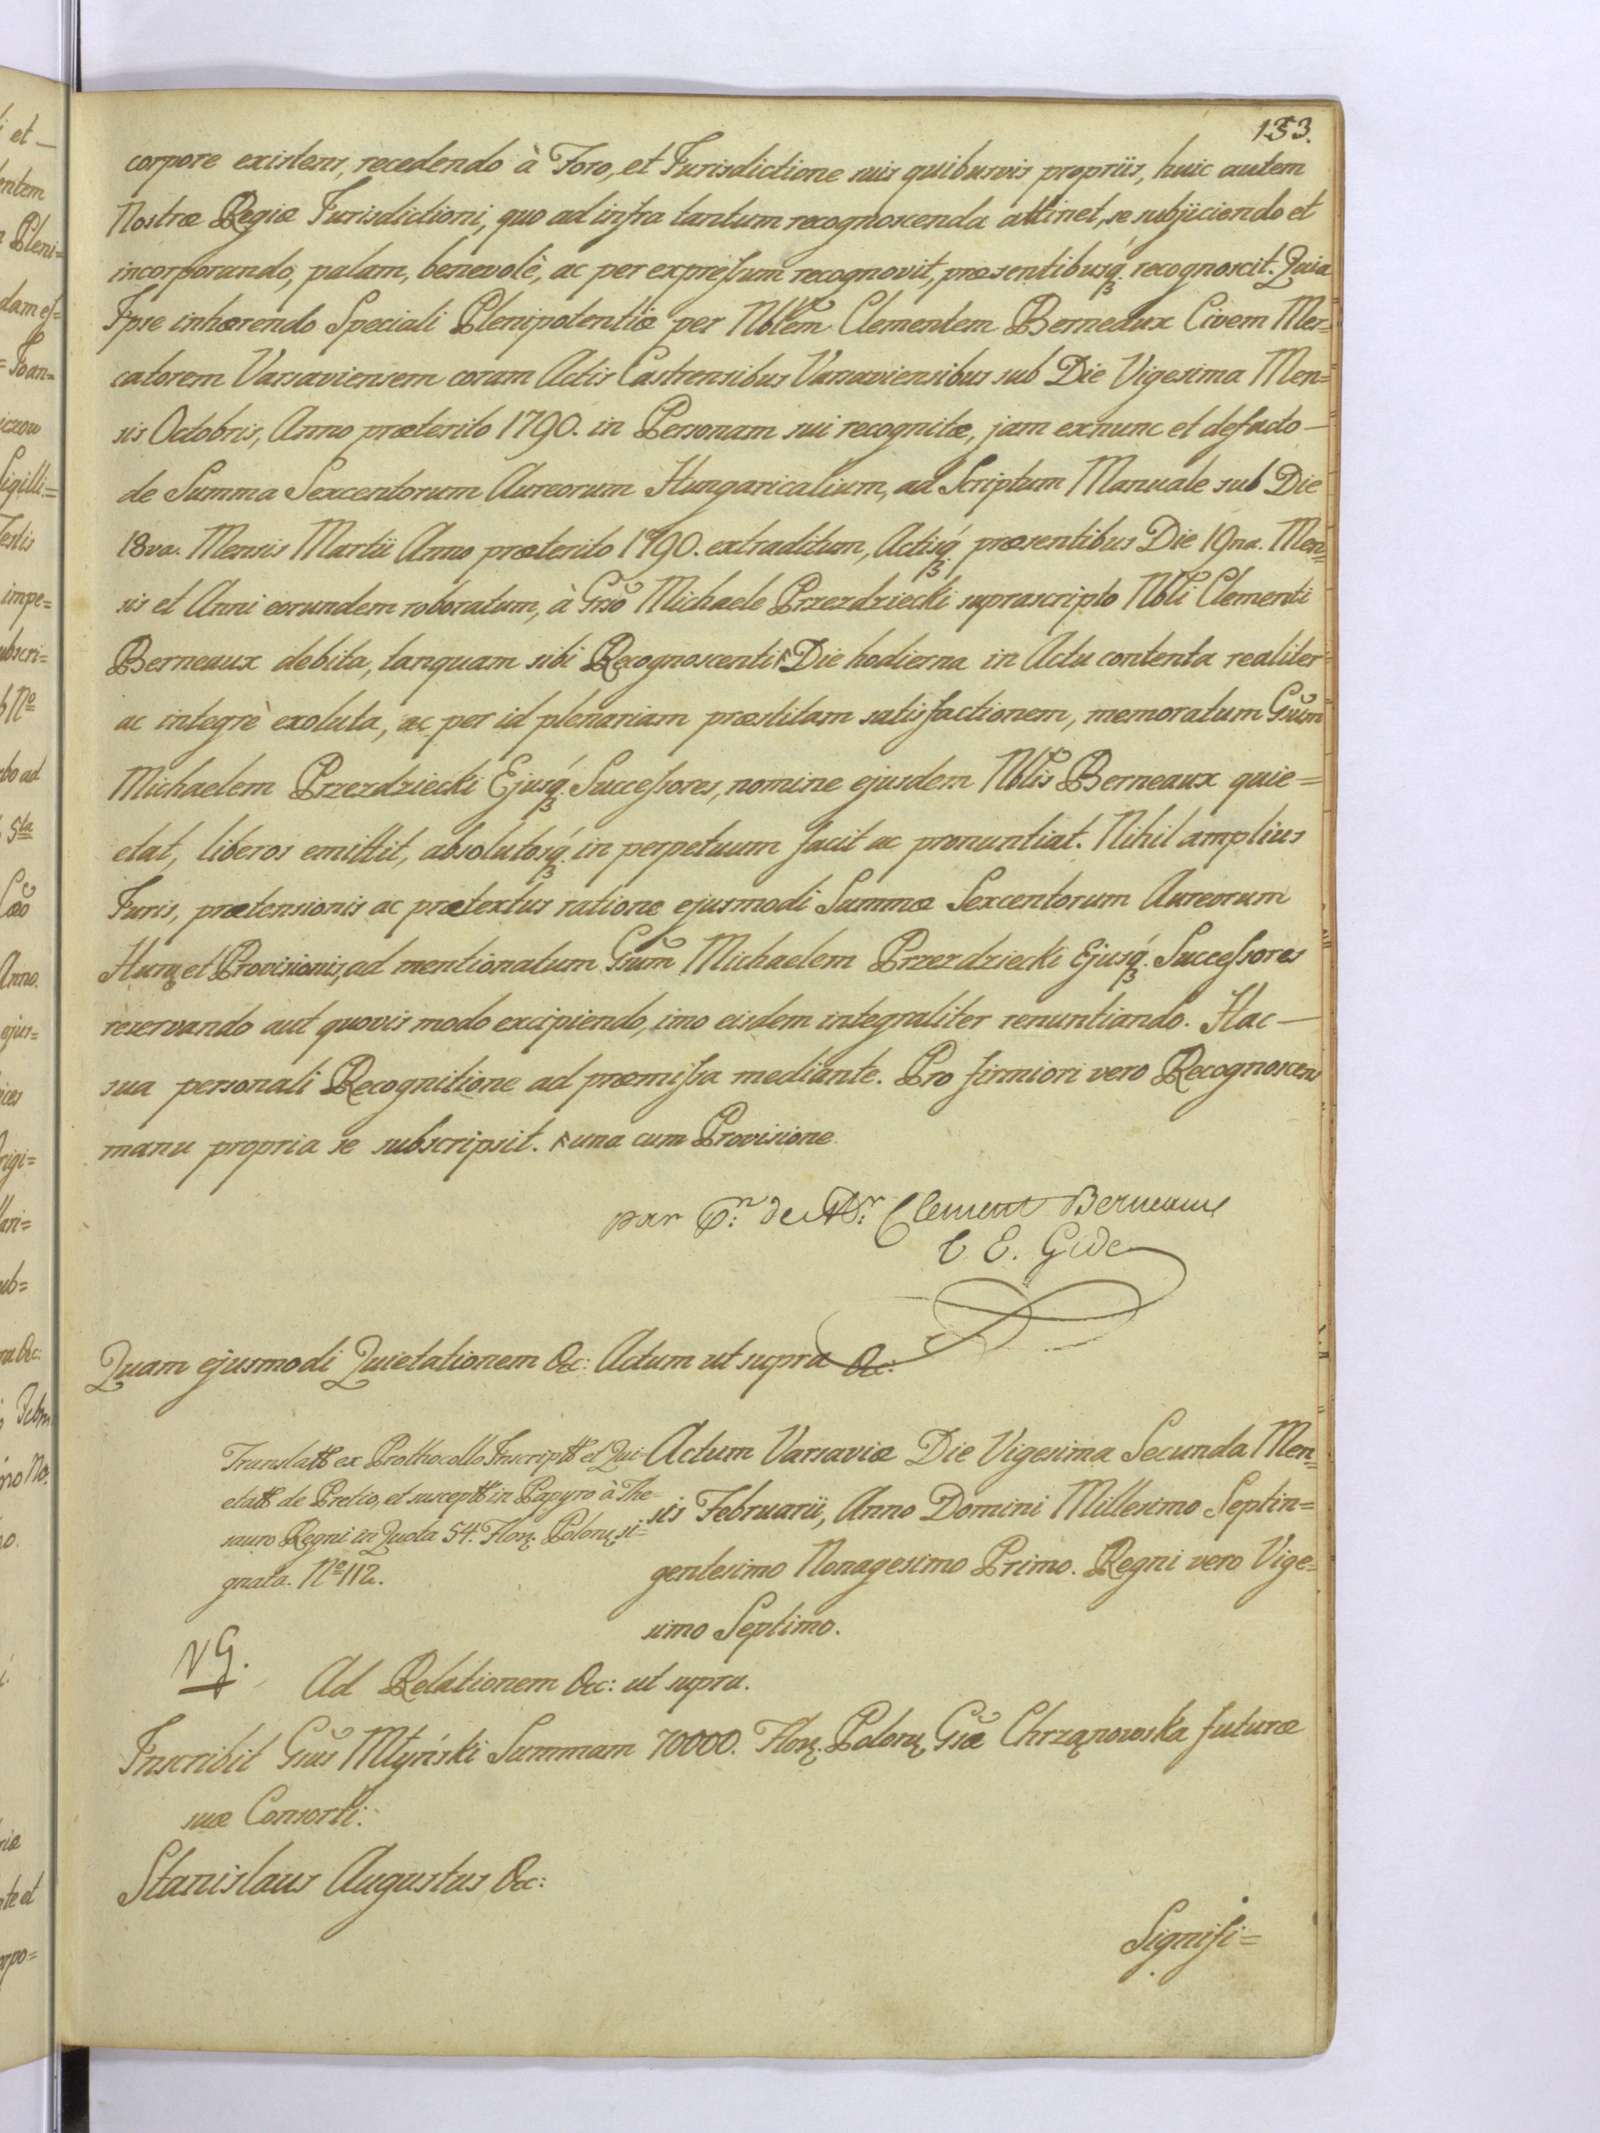 133.
corpore existens, recedendo à Foro, et Jurisdictione suis quibusvis propriis, huic autem
Nostræ Regiæ Jurisdictioni, quo ad infra tantum recognoscenda attinet, se subjiciendo et
incorporando, palam, benevolè, ac per expressum recognovit, præsentibusq́ꝫ recognoscit. Quia
Ipse inhærendo Speciali Plenipotentiæ per Nblem Clementem Berneaux Civem Mer=
catorem Varsaviensem coram Actis Castrensibus Varsaviensibus sub Die Vigesima Men=
sis Octobris, Anno præterito 1790. in Personam sui recognitæ, jam exnunc et defacto —
de Summa Sexcentorum Aureorum Hungaricalium, ad Scriptum Manuale sub Die
18va. Mensis Martii Anno præterito 1790. extraditum, Actisq́ꝫ præsentibus Die 19na. Men=
sis et Anni eorundem roboratum, à Gnso Michaele Przezdziecki suprascripto Nbli Clementi
Berneaux debita, tanquam sibi Recognoscenti ^ Die hodierna in Actu contenta realiter
ac integrè exoluta, ac per id plenariam præstitam satisfactionem, memoratum Gsum
Michaelem Przezdziecki Ejusq́ꝫ Successores, nomine ejusdem Nblis Berneaux quie=
etat, liberos emittit, absolutosq́ꝫ in perpetuum facit ac pronuntiat. Nihil amplius
Juris, prætensionis ac prætextus ratione ejusmodi Summæ Sexcentorum Aureorum
Hung et Provisionis, ad mentionatum Gsum Michaelem Przezdziecki Ejusq́ꝫ Successores
reservando aut quovis modo excipiendo, imo eisdem integraliter renuntiando. Hac —
sua personali Recognitione ad præmissa mediante. Pro firmiori vero Recognoscens
manu propria se subscripsit. ^ una cum Provisione
par Pn: de Mr: Clement Berneaux
C. E. Gide
Quam ejusmodi Quietationem &c: Actum ut supra &c:
Translatt ex Prothocollo Inscriptt et Qui-
etatt de Pretio, et susceptt in Papyro à The=
sauro Regni in Quota 54. Flor. Polon, si=
gnata. No 112.
Actum Varsaviæ Die Vigesima Secunda Men=
sis Februarii, Anno Domini Millesimo Septin=
gentesimo Nonagesimo Primo. Regni vero Vige=
simo Septimo.
NG.
Ad Relationem &c: ut supra.
Inscribit Gsus Młyński Summam 70000. Flor. Polon, Gsæ Chrząnowska futuræ
suæ Consorti.
Stanislaus Augustus &c:
Signifi=